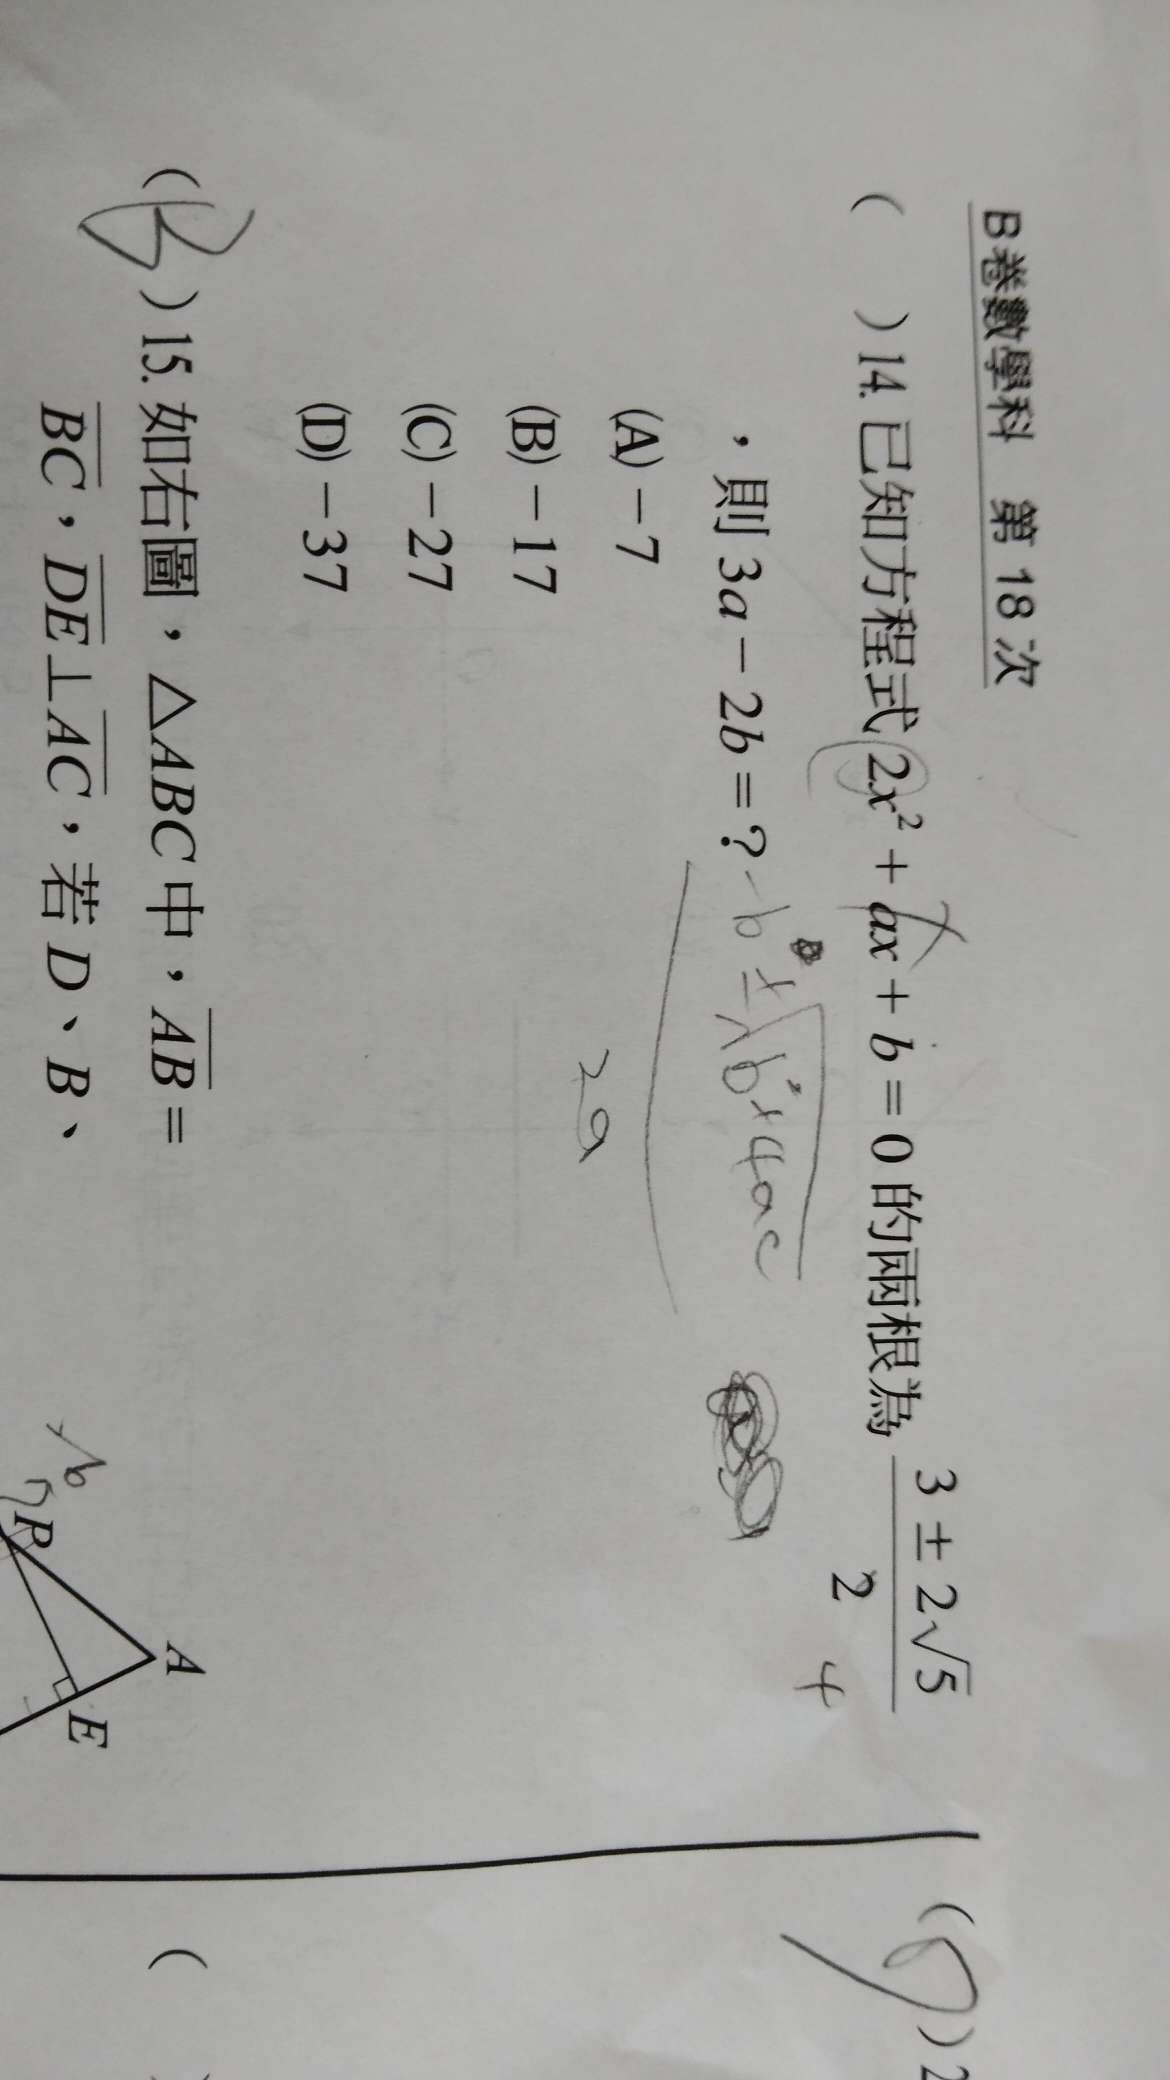 B卷數學科 第18次
( )14. 已知方程式 2x² + ax + b = 0 的兩根為 \frac{3 ± 2√5}{2}
4
，則 3a − 2b = ?
-b ± √b²+4ac
2a
(A) −7
(B) −17
(C) −27
(D) −37
(B)15. 如右圖，△ABC 中，AB =
BC，DE⊥AC，若 D、B、
A
E
B
( )2
(